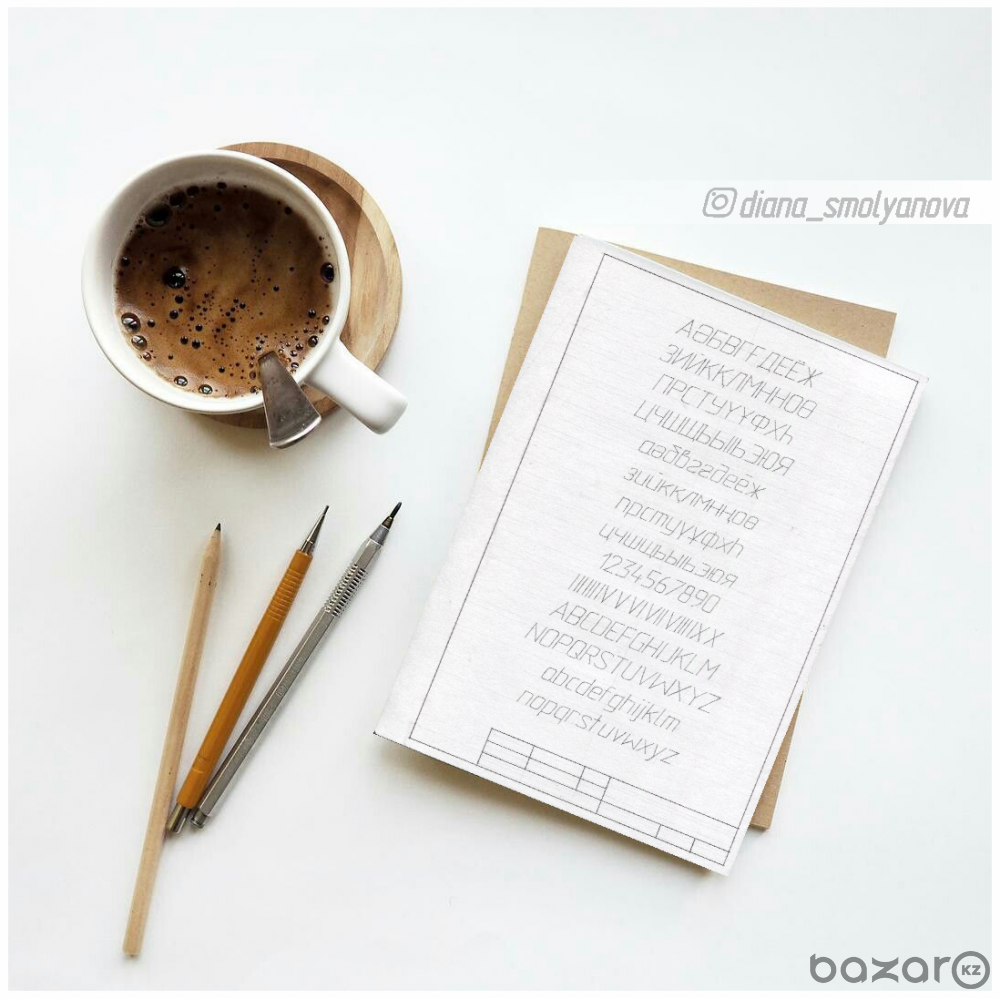 diana_smolyanova
АӘБВГҒДЕЁЖ
ЗИЙКҚЛМНҢОӨ
ПРСТУҮҰФХҺ
ЦЧШЩЪЫІЬЭЮЯ
аәбвгғдеёж
зийкқлмнңоө
прстуүұфхһ
цчшщъыіьэюя
1234567890
IIIIIIIVVVIVIIVIIIIXX
ABCDEFGHIJKLM
NOPQRSTUVWXYZ
abcdefghijklm
nopqrstuvwxyz
bazar KZ